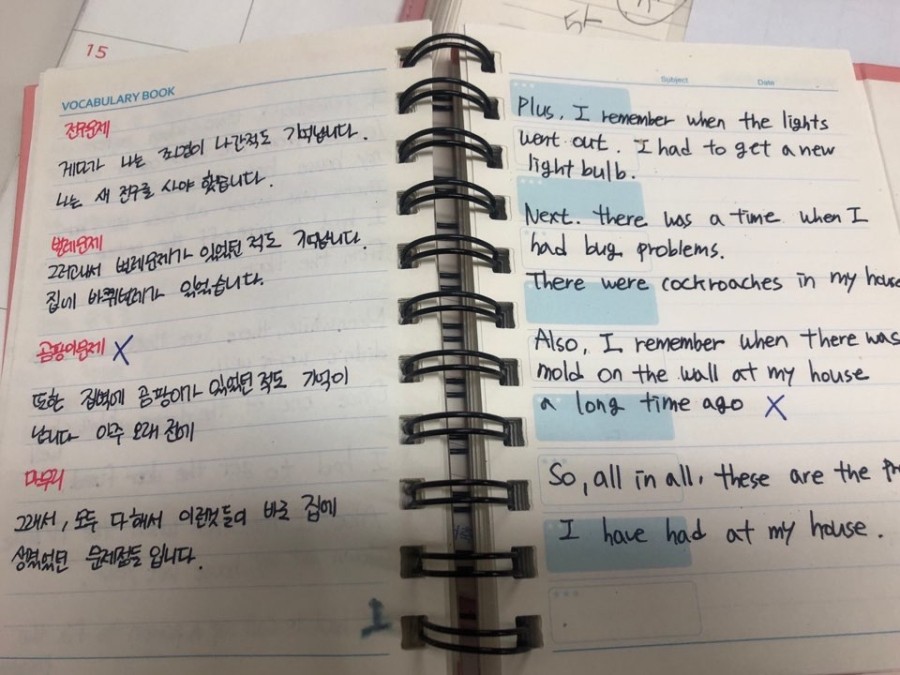 15
VOCABULARY BOOK
전구문제
게다가 나는 조명이 나간적도 기억납니다.
나는 새 전구를 사야 했습니다.
벌레문제
그러고나서 벌레문제가 있었던 적도 기억납니다.
집에 바퀴벌레가 있었습니다.
곰팡이문제 X
또한 집벽에 곰팡이가 있었던 적도 기억이
납니다 아주 오래 전에
마무리
그래서, 모두 다해서 이런것들이 바로 집에
생겼었던 문제점들 입니다.
Subject Date
Plus, I remember when the lights
went out. I had to get a new
light bulb.
Next. there was a time when I
had bug problems.
There were cockroaches in my house
Also, I remember when there was
mold on the wall at my house
a long time ago X
So, all in all, these are the pr
I have had at my house.